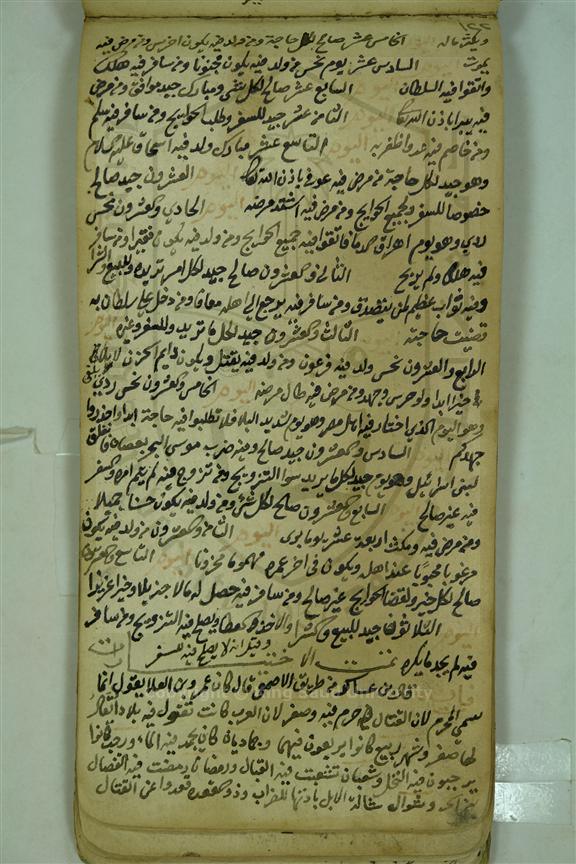 ١٢٢
ويكثر ماله الخامس عشر صالح لكل حاجة ومن ولد فيه يكون اخرس ومن مرض فيه
يموت السادس عشر يوم نحس من ولد فيه يكون مجنونا ومن سافر فيه هلك
واتقوا فيه السلطان السابع عشر صالح لكل شي ومبارك جيد موافق ومن مرض
فيه يبرا باذن الله تعالى الثامن عشر جيد للسفر وطلب الحوايج ومن سافر فيه سلم
ومن خاصم فيه عدوا ظفر به التاسع عشر مبارك ولد فيه اسحاق عليه السلام
وهو جيد لكل حاجة من مرض فيه عوفي باذن الله تعالى العشرون جيد صالح
خصوصا للسفر ولجميع الحوايج ومن مرض فيه اشتد مرضه الحادي والعشرون نحس
ردي وهو يوم اهراق الدما فاتقوا فيه جميع الحوايج ومن ولد فيه يكون فقيرا ومن سافر
فيه هلك ولم يربح الثاني والعشرون صالح جيد لكل امر تريده وللبيع والشرا
وفيه ثواب عظيم لمن يتصدق ومن سافر فيه يرجع الى اهله معافا ومن دخل على سلطان به
قضيت حاجته الثالث والعشرون جيد لكل ما تريد وللسفر وغيره
الرابع والعشرون نحس ولد فيه فرعون ومن ولد فيه يقتل ويكون دايم الحزن لا يلاقي
خيرا ابدا ولو حرس وجهد ومن مرض فيه طال مرضه الخامس والعشرون نحس ردي
وهو اليوم الذي فيه اهل مصر وهو يوم شديد البلا فلا تطلبوا فيه حاجة ابدا واحذروا
جهدكم السادس والعشرون جيد صالح وفيه ضرب موسى البحر بعصاه فانفلق
لبني اسرائيل وهو يوم جيد لكل ما يريد سوا التزويج ومن تزوج فيه لم يتم امره والسفر
فيه غير صالح السابع والعشرون صالح لكل شي ومن ولد فيه يكون حسنا جميلا
ومن مرض فيه ومكث اربعة عشر يوما يبرى الثامن والعشرون من ولد فيه يكون
مرغوبا محبوبا عند اهله ويكون في اخر عمره مهموما محزونا التاسع والعشرون
صالح لكل خير ولقضا الحوايج غير صالح ومن سافر فيه حصل له مالا جزيلا وخيرا غزيرا
الثلاثون جيد للبيع والشرا والاخذ والعطا ويصلح فيه التزويج ومن سافر
فيه لم يجد ما يكره وقيل انه لا يصلح فيه للسفر
تمت الاختيارات
ابن عساكر من طريق الاصمعي قال كان ابو عمرو بن العلا يقول انما
سمي المحرم لان القتال حرم فيه وصفر لان العرب كانت تنزل فيه بلادا يقال
لها صفر وشهري ربيع كانوا يربعون فيهما وجمادين كان يجمد فيه الما ورجب كانوا
يرجبون فيه النخل وشعبان تشعبت فيه القبائل ورمضان رمضت فيه الفصال
من الحر وشوال شالت الابل باذنابها للضراب وذو القعدة قعدوا عن القتال